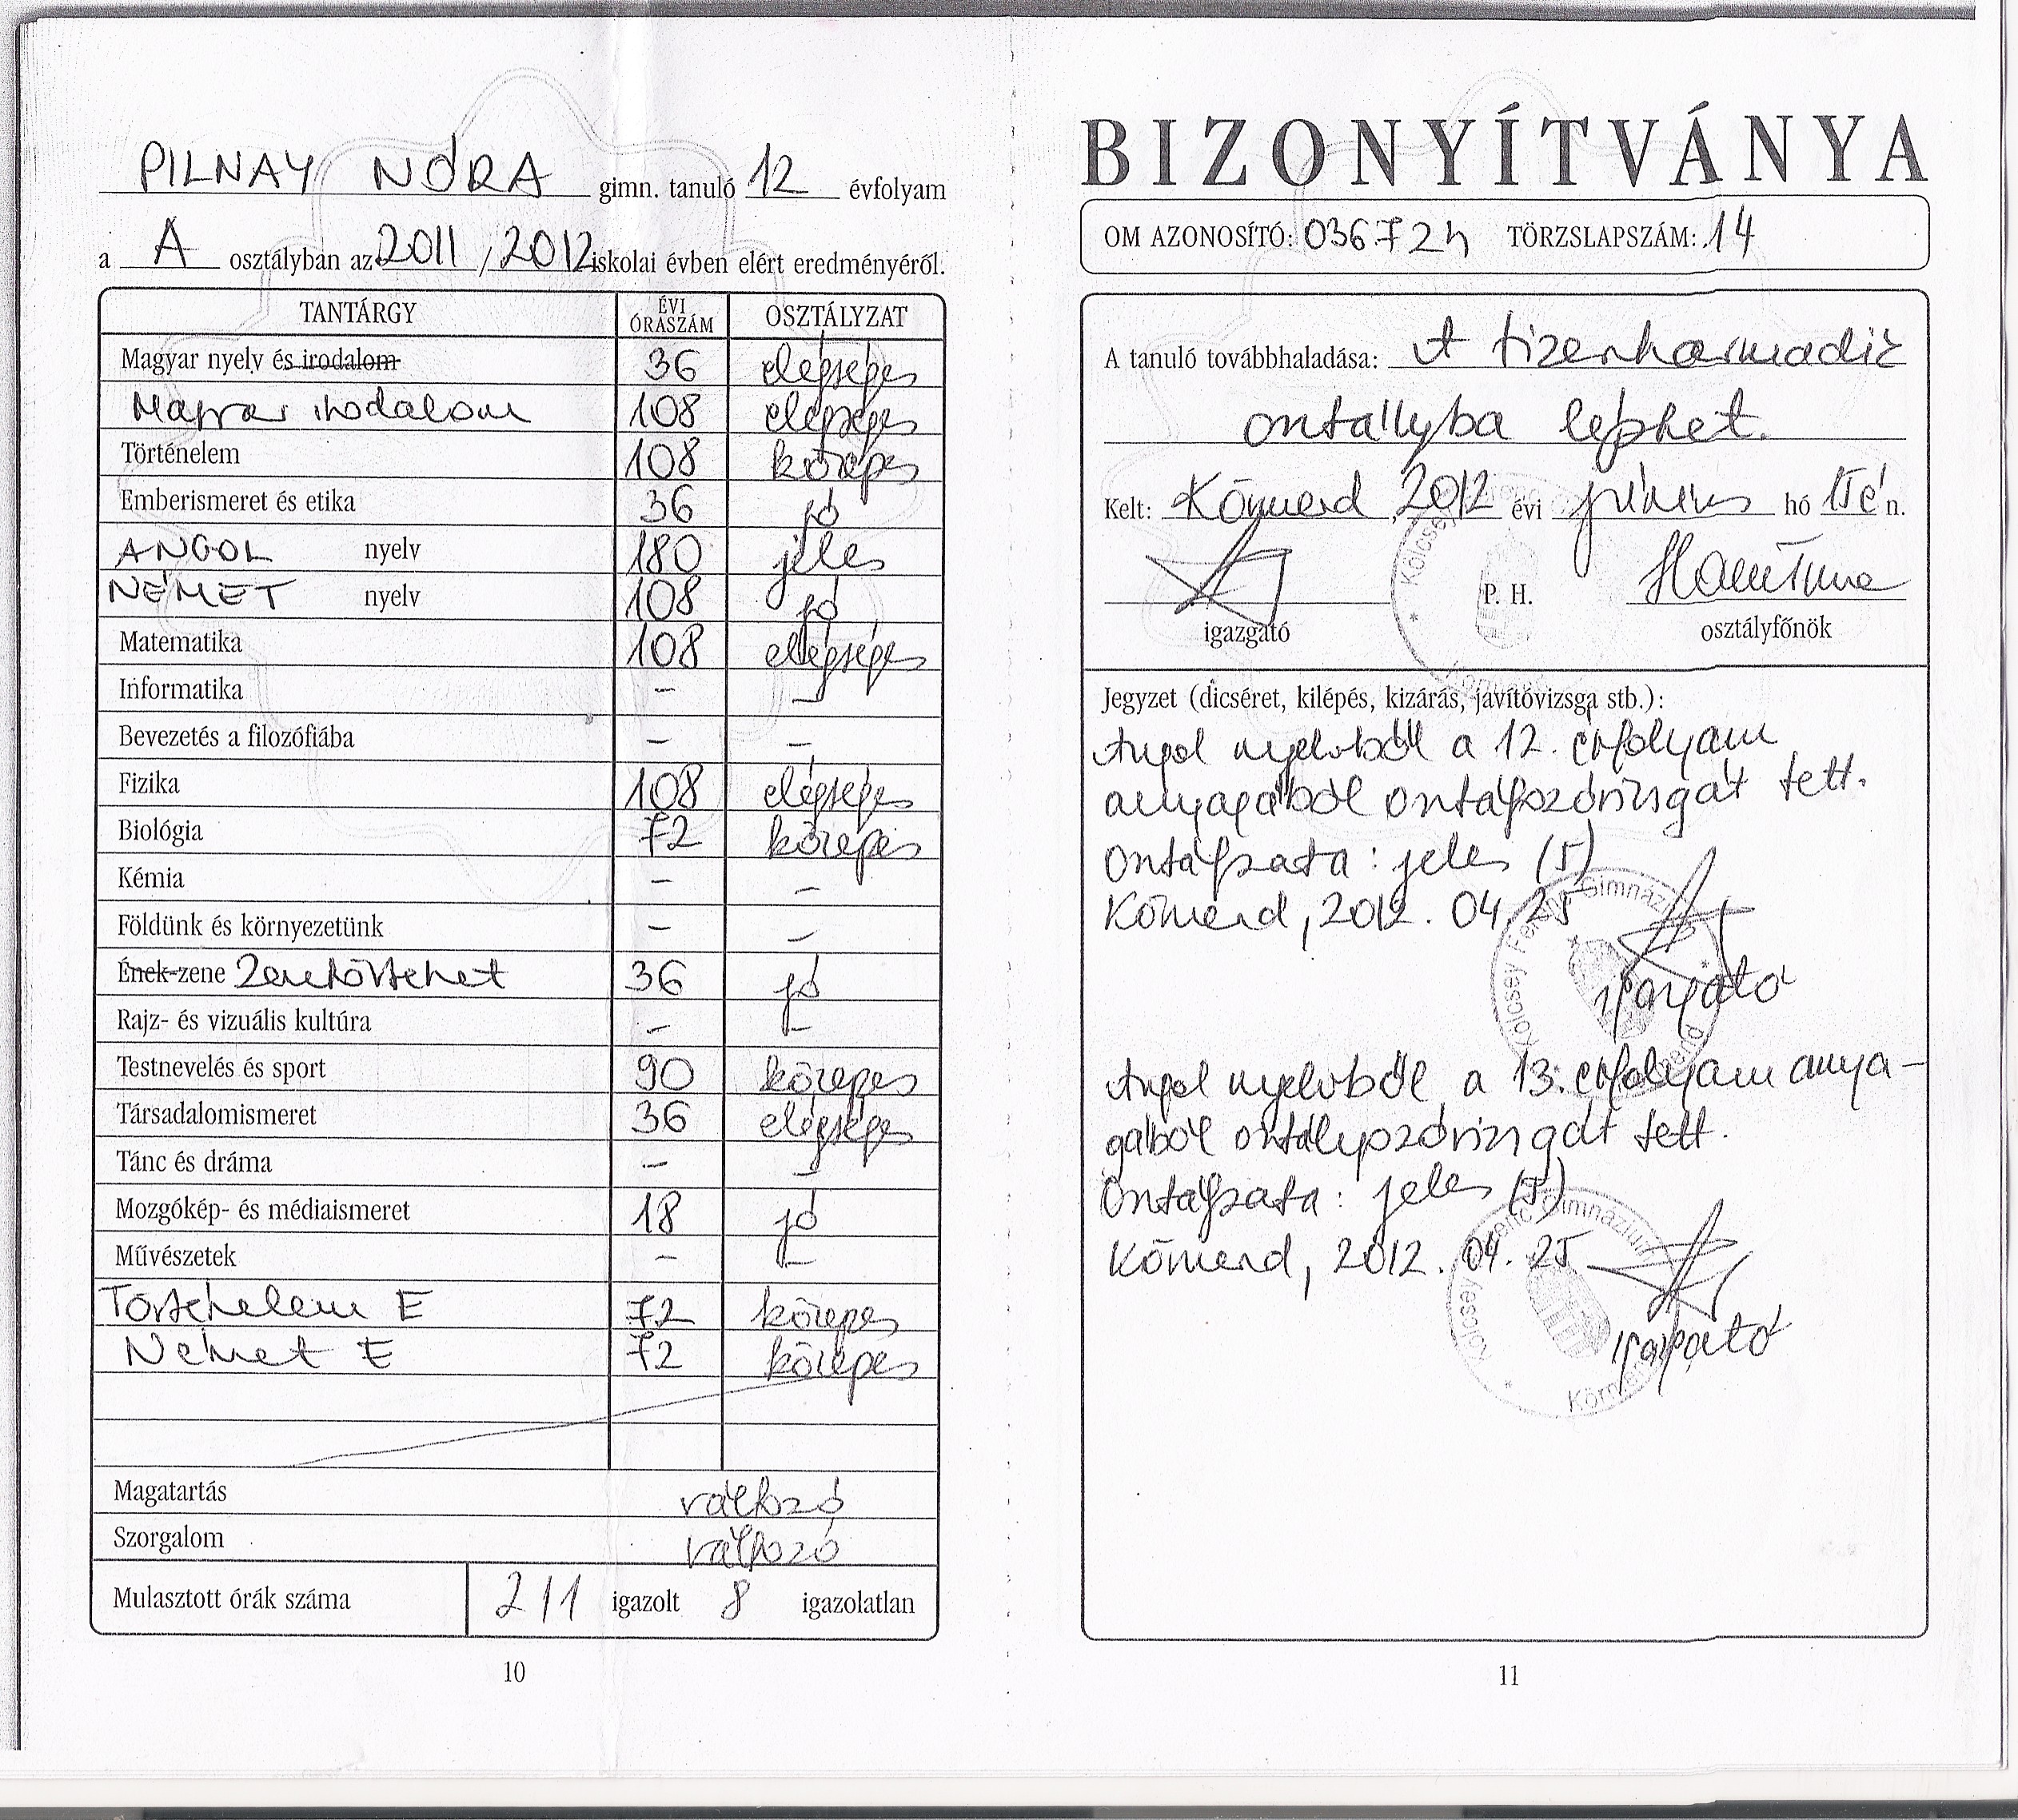 PILNAY NÓRA gimn. tanuló 12 évfolyam
a A osztályban az 2011 / 2012 iskolai évben elért eredményéről.
TANTÁRGY ÉVI ÓRASZÁM OSZTÁLYZAT
Magyar nyelv és irodalom 36 elégséges
Magyar irodalom 108 elégséges
Történelem 108 közepes
Emberismeret és etika 36 jó
ANGOL nyelv 180 jeles
NÉMET nyelv 108 jó
Matematika 108 elégséges
Informatika – –
Bevezetés a filozófiába – –
Fizika 108 elégséges
Biológia 72 közepes
Kémia – –
Földünk és környezetünk – –
Ének-zene Zenetörténet 36 jó
Rajz- és vizuális kultúra – –
Testnevelés és sport 90 közepes
Társadalomismeret 36 elégséges
Tánc és dráma – –
Mozgókép- és médiaismeret 18 jó
Művészetek – –
Történelem E 72 közepes
Német E 72 közepes
Magatartás változó
Szorgalom változó
Mulasztott órák száma 211 igazolt 8 igazolatlan
10
BIZONYÍTVÁNYA
OM AZONOSÍTÓ: 036724 TÖRZSLAPSZÁM: 14
A tanuló továbbhaladása: A tizenharmadik
osztályba léphet.
Kelt: Körmend, 2012 évi június hó 15é n.
P. H.
igazgató osztályfőnök
Jegyzet (dicséret, kilépés, kizárás, javítóvizsga stb.):
Angol nyelvből a 12. évfolyam
anyagából osztályozóvizsgát tett.
Osztályzata: jeles (5)
Körmend, 2012. 04. 25
igazgató
Angol nyelvből a 13. évfolyam anya-
gából osztályozóvizsgát tett.
Osztályzata: jeles (5)
Körmend, 2012. 04. 25
igazgató
Kölcsey Ferenc Gimnázium
Körmend
11